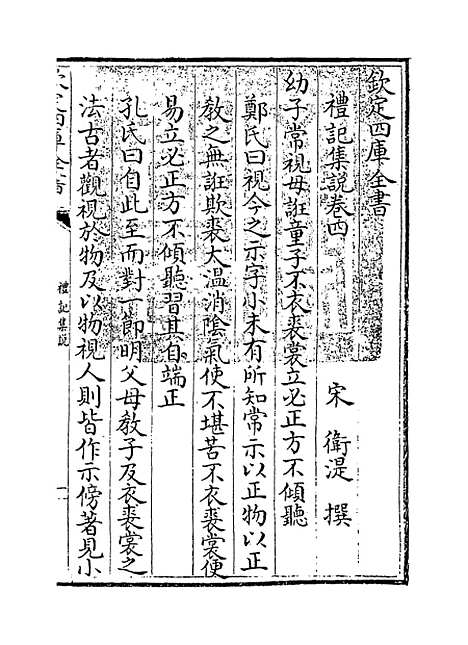 欽定四庫全書
禮記集說卷四
宋 衛湜 撰
幼子常視母誑童子不衣裘裳立必正方不傾聽
鄭氏曰視今之示字小未有所知常示以正物以正
教之無誑欺裘大温消陰氣使不堪苦不衣裘裳便
易立必正方不傾聽習其自端正
孔氏曰自此至而對一節明父母教子及衣裘裳之
法古者觀視於物及以物視人則皆作示傍著見小
禮記集説
一